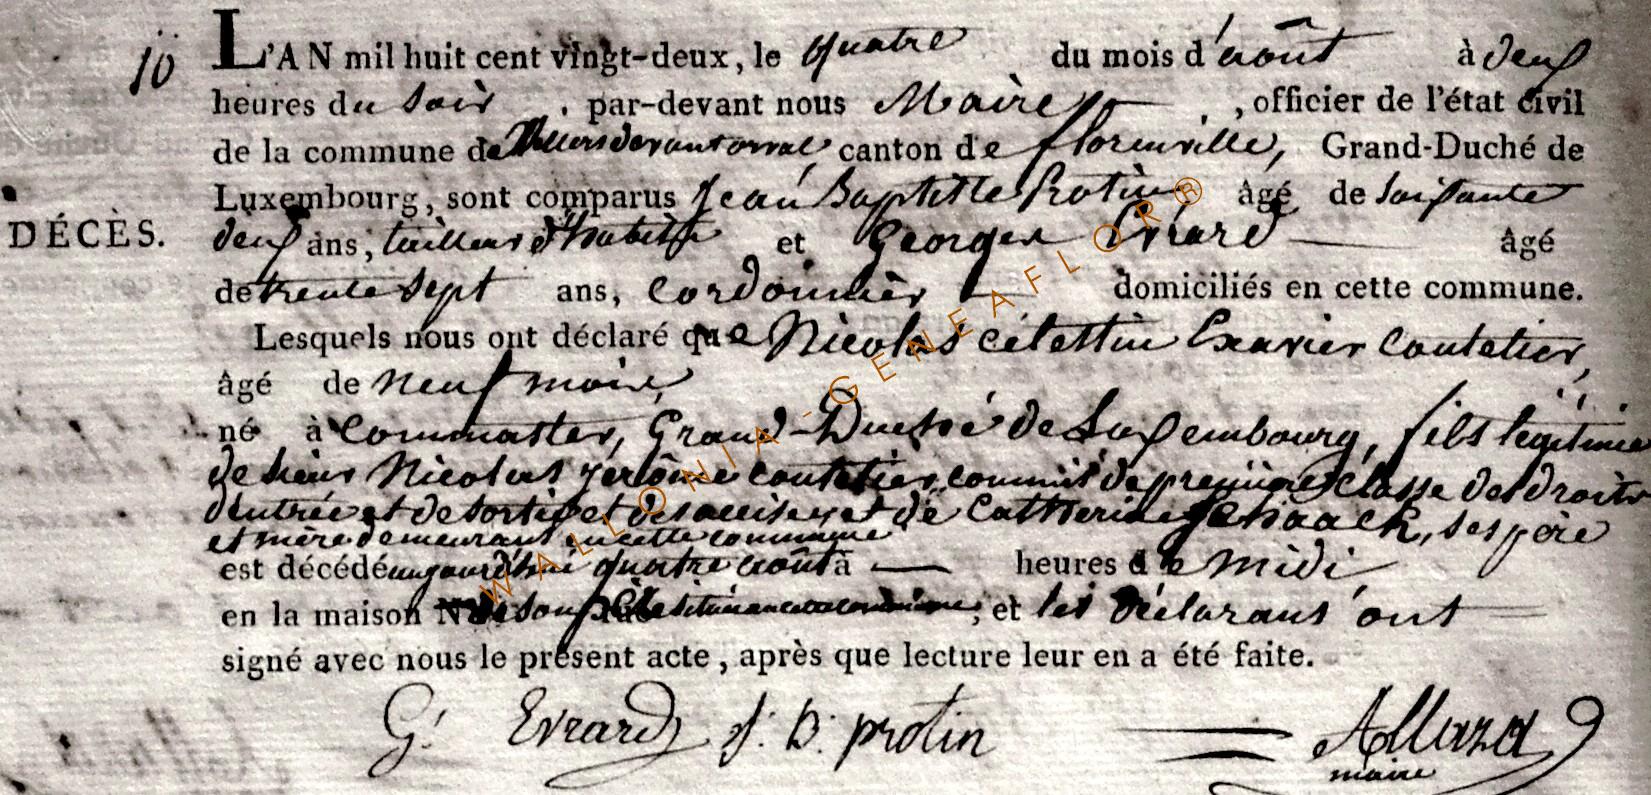 10
L'AN mil huit cent vingt-deux, le quatre du mois d'août à deux
heures du soir, par-devant nous Maire, officier de l'état civil
de la commune de Villers devant orval, canton de florenville, Grand-Duché de
Luxembourg, sont comparus Jean Baptiste Protin âgé de soixante
DÉCÈS.
deux ans, tailleur d'habits et Georges Evrard âgé
de trente sept ans, cordonnier domiciliés en cette commune.
Lesquels nous ont déclaré que Nicolas célestin Exavier coutelier,
âgé de neuf mois,
né à Commaster, Grand-Duché de Luxembourg, fils légitime
de sieur Nicolas Jerôme coutelier, commis de première classe des droits
d'entrée et de sortie et des accises, et de Catherine Schaack, ses père
et mère demeurant en cette commune
est décédé aujourd'hui quatre août à heures de midi
en la maison de son père située en cette commune, et les déclarans ont
signé avec nous le présent acte, après que lecture leur en a été faite.
G. Evrard J. B. protin
maire
WALLONIA-GENEAFLOR®